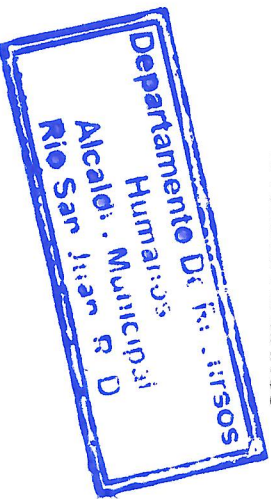 Departamento De
Humanos
Alcaldi Municipal
Rio San Juan R D